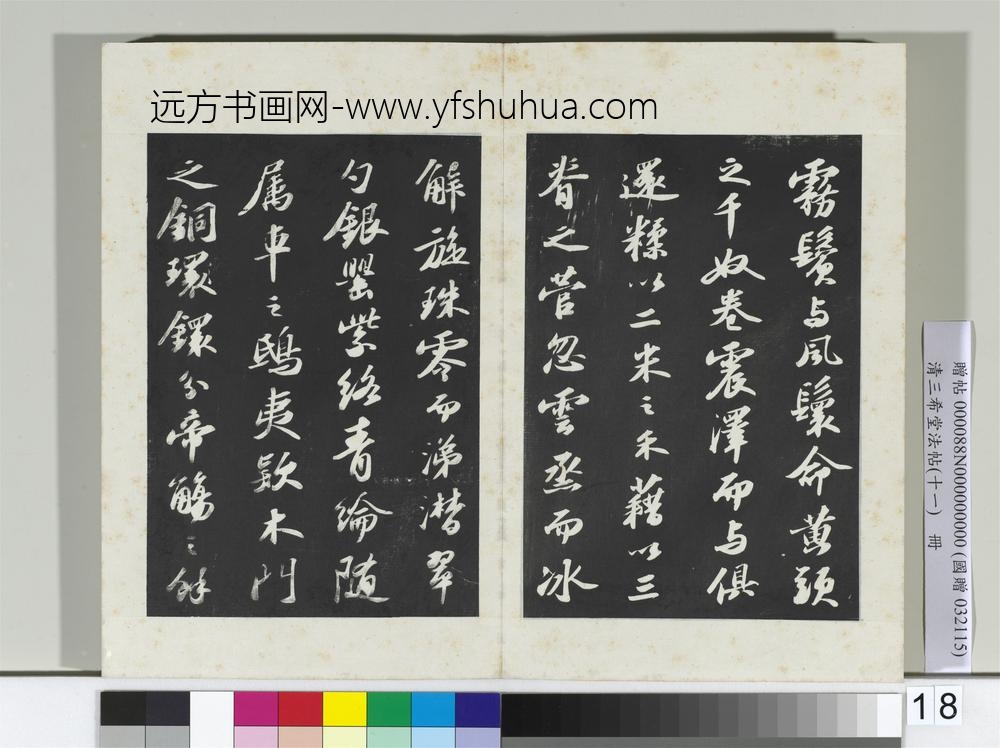 远方书画网-www.yfshuhua.com
霧鬢与風鬟命黄頭
之千奴卷震澤而与俱
還糅以二米之禾藉以三
脊之菅忽雲烝而冰
解旋珠零而涕潸翠
勺銀罌紫絡青綸随
属車之鴟夷欵木門
之銅環鐶分帝觴之餘
贈帖 000088N000000000 (國贈 032115)
清三希堂法帖(十一) 冊
18